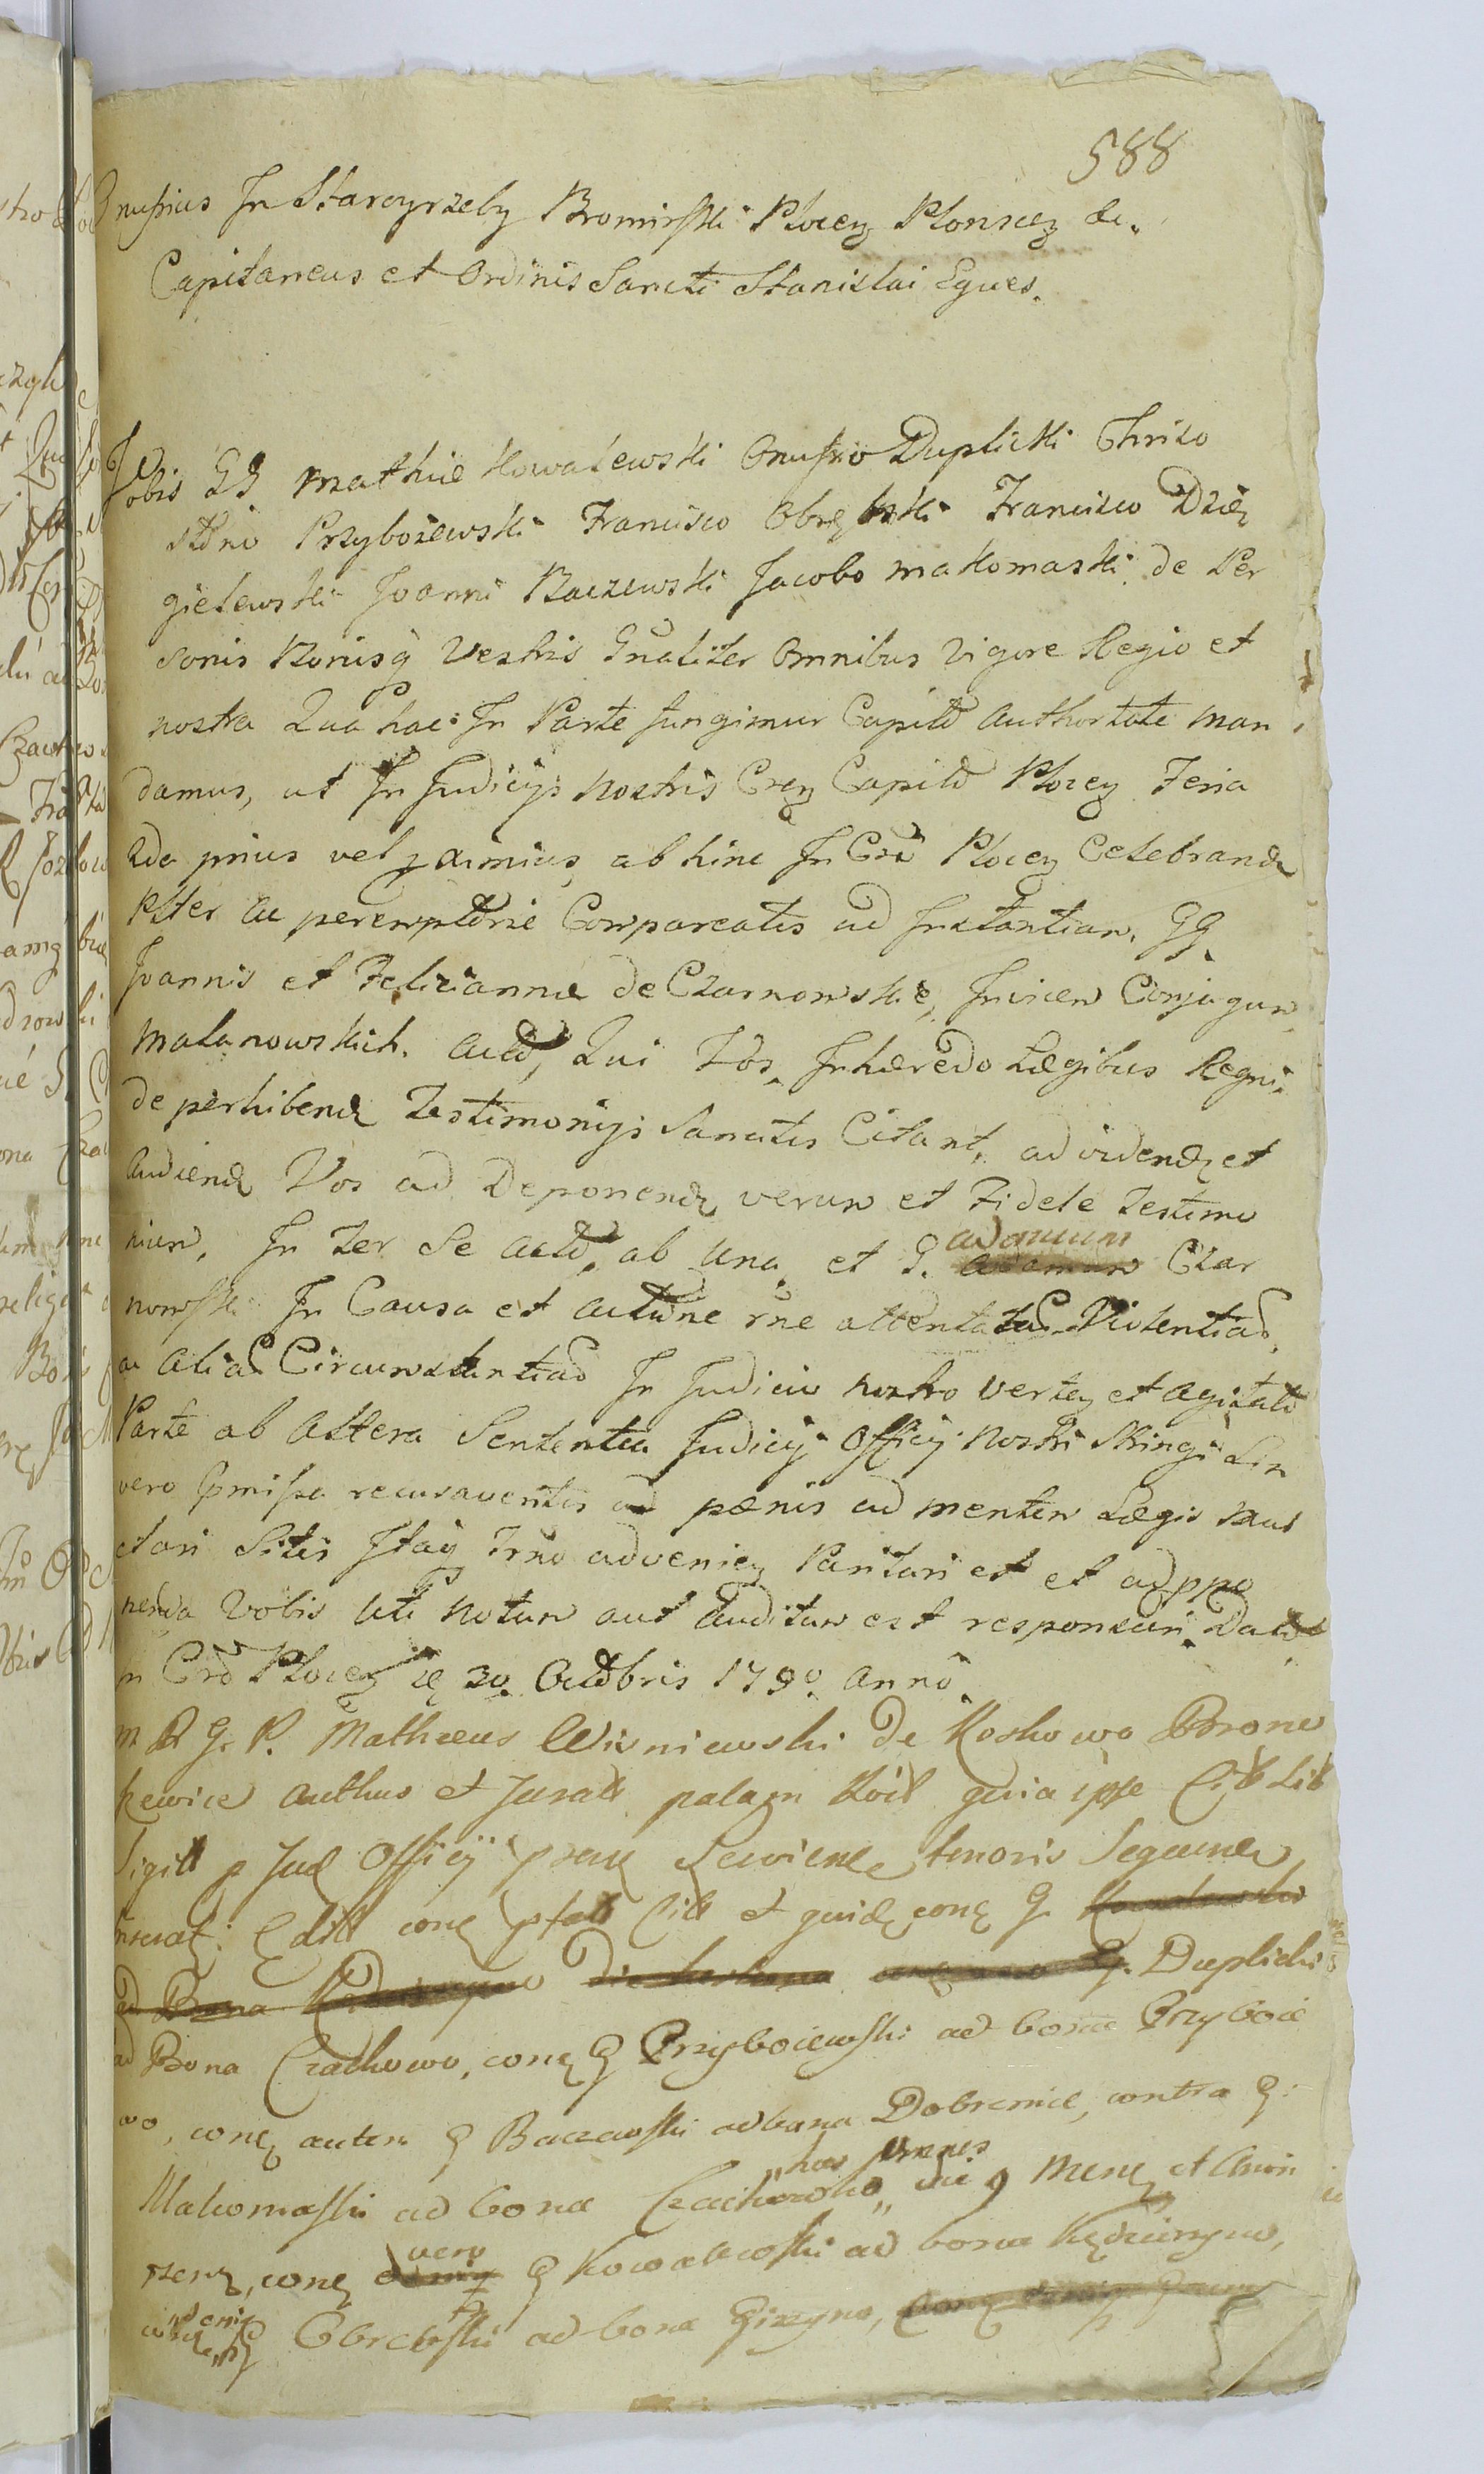 588
Onufrius In Starogrzeby Bromirski Plocen Plonscen &c.
Capitaneus et Ordinis Sancti Stanislai Eques.
Vobis GG Mathiæ Kowalewski Onufrio Duplicki Chriso
stomo Przyborewski Francisco Obrębski Francisco Dzię
gielewski Joanni Baczewski Jacobo Makomaski de Per
sonis Bonisq Vestris Gnaliter Omnibus Vigore Regio et
nostra Qua hac In Parte fungimur Capitli Authoritate Man
damus, ut In Judicijs Nostris Cren Capitli Plocen Feria
2da prius vel proximius ab hinc In Cro Plocen Celebrand
Plter ac peremptorie Compareatis ad Instantiam GG
Joannis et Felicianna de Czarnowskie, Invicem Conjugum
Malanowskich. Actor, Qui Vos Inhærendo Lægibus Regni
de perhibend Testimonijs Sancitis Citant, ad videnda et
Audiend Vos ad Deponend verum et Fidele Testimo
nium, In Ter Se Actor ab Una et G. Czar
nowski In Causa et Actione rne attentatar Violentiar
ac Aliar Circumstantiar In Judicio Nostro verten et Agitata
Parte ab Altera Sententia Judicij Officij Nostri Stringi Sin
vero præmissa recusaveritis pænis ad mentem Lægis mul
ctari Sitis Itaq Trno advenien Parituri et et ad ppo
nenda Vobis Uti Notum aut Auditum est responsuri. Datt
in Cro Plocen D 20 Octobris 1780 Anno
M R G. P. Mathæus Wisniewski de Koskowo Brone
kewice Authus et Jurat palam quia ipse Citt Litt
Sigill p Jud Officij prem tenoris Sequen
inserat: Edidt con ptatt Citt et quid con G.
ad Bona Duplicki
ad Bona Czachowo, con G Przyborewski ad bona Przybore
wo, con autem G Baczewski ad bona Dobrcnice, contra G:
Makomaski ad bona Czachowsko hos omnes die 9 Mens et Anni
præsen, con vero G Kowalewski ad bona Kędzierzyno,
con G Obrębski ad bona Gizyno,